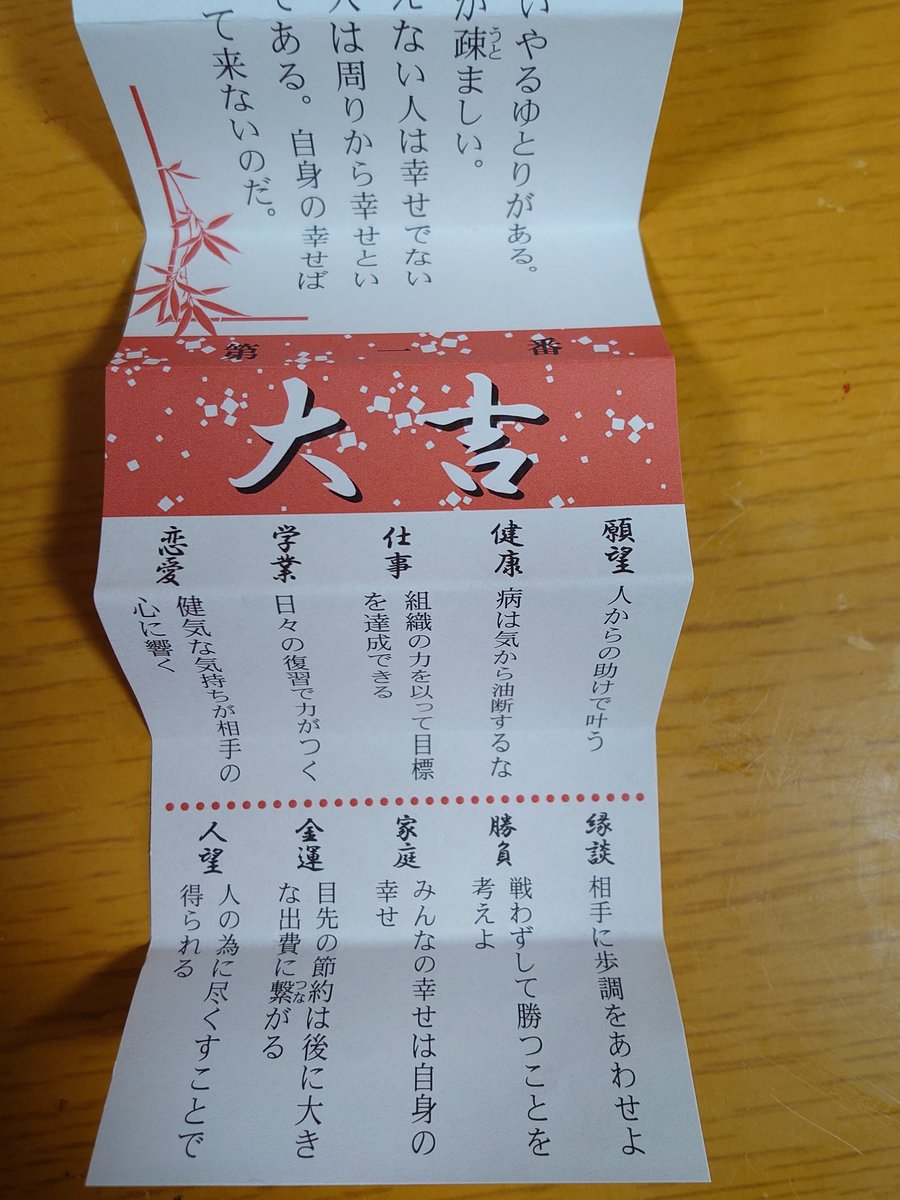 いやるゆとりがある。
が疎ましい。
うと
えない人は幸せでない
人は周りから幸せとい
である。自身の幸せば
て来ないのだ。
第一番
大吉
願望
人からの助けで叶う
健康
病は気から油断するな
仕事
組織の力を以って目標
を達成できる
学業
日々の復習で力がつく
恋愛
健気な気持ちが相手の
心に響く
縁談
相手に歩調をあわせよ
勝負
戦わずして勝つことを
考えよ
家庭
みんなの幸せは自身の
幸せ
金運
目先の節約は後に大き
な出費に繋がる
つな
人望
人の為に尽くすことで
得られる